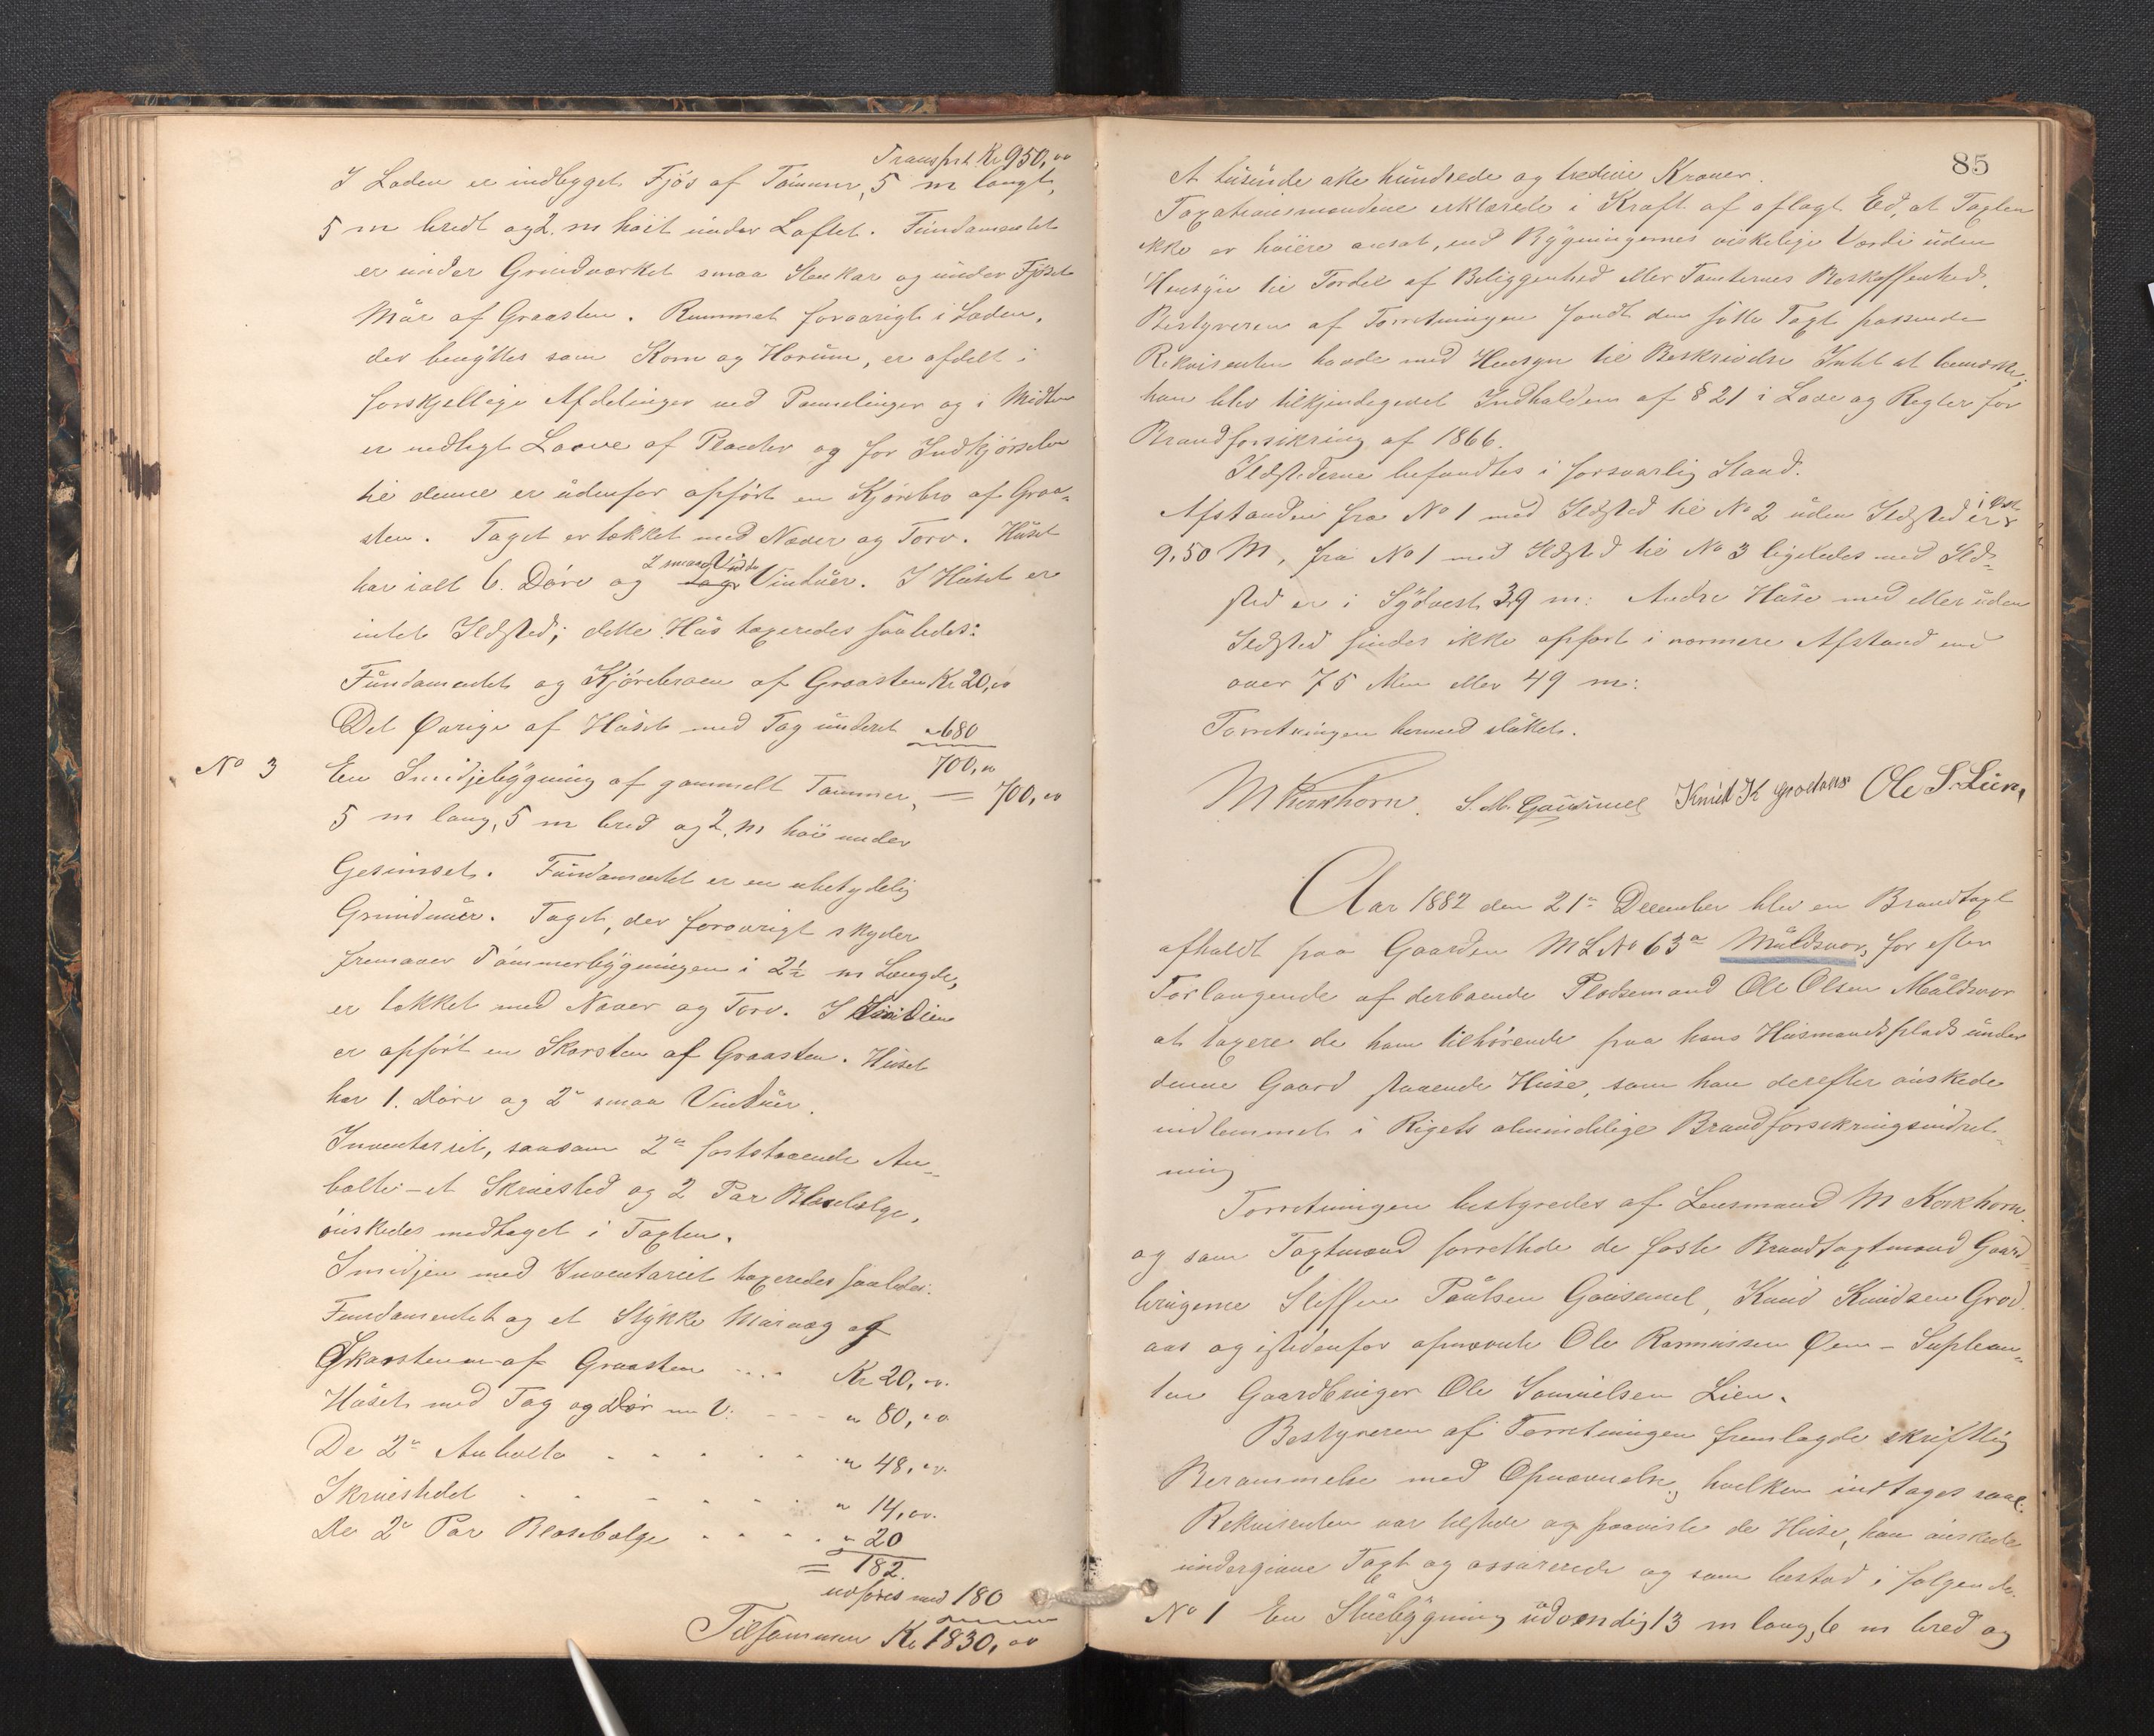 Transprt. Kr 950,00
I Laden er indbygget Fjøs af Tømmer, 5 m langt,
5 m bredt og 2. m høit under Loftet. Fundamentet
er under Grindverket smaa Stenkar og under Fjøset
Mür af Graasten. Rummet forøvrigt i Laden,
der benyttes som Korn og Horum, er afdelt i
forskjellige Afdelinger ved Pannelinger og i Midten
er nedlagt Laave af Planker og for Indkjørselen
til denne er udenfor opført en Kjørebro af Graa-
sten. Taget er tækket med Næver og Torv. Huset
har ialt 6. Døre og 2 smaa Vinduer. I Huset er
intet Ildsted; dette Hus taxeredes saaledes:
Fundamentet og Kjørebroen af Graasten Kr 20,00
Det Øvrige af Huset med Tag iberegnet " 680
700,00
No 3 En Smidjebygning af gammelt Tømmer, = 700,00
5 m lang, 5 m bred og 2. m høi under
Gesimset. Fundamentet er en ubetydelig
Grundmur. Taget, der forøvrigt skyder
fremover Tømmerbygningen i 2½ m Længde,
er tækket med Næver og Torv. I Smidien
er opført en Skorsten af Graasten. Huset
har 1. Dør og 2 smaa Vinduer.
Inventariet, saasom 2 faststaaende Am-
bolte - et Skruested og 2 Par Blæsebelge,
ønskedes medtaget i Taxten.
Smidjen med Inventariet taxeredes saaledes:
Fundamentet og et Stykke Murvæg og
Skorstenen af Graasten .... Kr 20,00.
Huset med Tag og Dør m V. - - - " 80,00
De 2 Ambolte . . . . . " 48,00.
Skruestedet . . . . . . " 14,00.
De 2 Par Blæsebælge . . . . " 20
= 182.
udføres med 180
Tilsammen Kr 1830,00
85
Et tusinde otte hundrede og tredive Kroner.
Taxationsmændene erklærede i Kraft af aflagt Ed, at Taxten
ikke er høiere ansat, end Bygningernes virkelige Værdi uden
Hensyn til Fordel af Beliggenhed eller Tomternes Beskaffenhed.
Bestyreren af Forretningen fandt den satte Taxt passende
Rekvirenten havde med Hensyn til Beskrivelse Intet at bemærke,
han blev tilkjendegivet Indholden af § 21 i Love og Regler for
Brandforsikring af 1866.
Ildstederne befandtes i forsvarlig Stand.
Afstanden fra No 1 med Ildsted til No 2 uden Ildsted er i Vest
9,50 M, fra No 1 med Ildsted til No 3 ligeledes med Ild-
sted er i Sydvest 39 m: Andre Huse med eller uden
Ildsted findes ikke opført i nærmere Afstand end
over 75 Alen eller 49 m:
Forretningen hermed sluttet.
M Korkhorn. S. M. Gausemel Knud K Grodaas Ole S. Lien,
Aar 1882 den 21 December blev en Brandtaxt
afholdt paa Gaarden M L No 63a Muldsvor, for efter
Forlangende af derboende Pladsemand Ole Olsen Muldsvor
at taxere de ham tilhørende paa hans Husmandsplads under
denne Gaard staaende Huse, som han derefter ønskede
indlemmet i Rigets almindelige Brandforsikringsindret-
ning
Forretningen bestyredes af Lensmand M Korkhorn.
og som Taxtmænd forrettede de faste Brandtaxtmænd Gaard-
brugerne Steffen Paulsen Gausemel, Knud Knudsen Grod-
aas og istedenfor opnævnte Ole Rasmussen Øen - Suplean-
ten Gaardbruger Ole Samuelsen Lien.
Bestyreren af Forretningen fremlagde skriftlig
Berammelse med Opnævnelse, hvilken indtages saal:
Rekvirenten var tilstede og paaviste de Huse, han ønskede
undergivne Taxt og assurerede og som bestod i følgende.
No 1 En Stuebygning udvendig 13 m lang, 6 m bred og